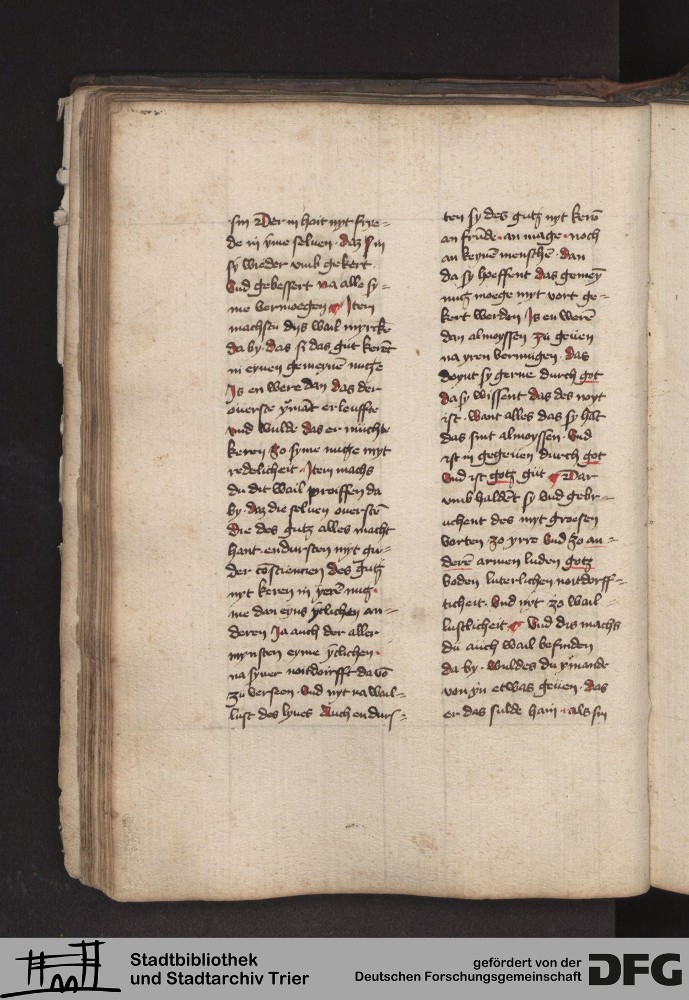 sin Der in hait nyt frye=
de in yme seluen · daz sin
sy wieder vmb gekert ·
Vnd gebessert na alle sy=
me vermoegen Item
machstu dijs wail myrckē
da by · das si das gut kerēt
in eynen gemeynē nutze
Is en were dan das der
ouerste ymāt erleuffte
vnd wulde das er müchte
keren zo syme nutze myt
redelicheit · Item machs
du dit wail proiffen da
by · daz die seluen ouerstē
die des gutz alles macht
hant · en dursten myt gu=
der cōsciencien des gutz
nyt keren in yerē nutz ·
me dan eyns ytlichen an=
deren Ja auch der aller
mynsten eyme ytlichen ·
na syner noitdoirfft da vō
zu versten · Vnd nyt na wail=
lust des lyues Auch en durs=
ten sy des gutz nyt kerē
an frūde · an mage · noch
an keynē menschē · dan
da sy hoeffent das gemey
nutz moege myt vort ge=
kert werden Is en werē
dan almoyssen zu geuen
na yren vermugen · das
doynt sy gerne durch got
da sy wissent das des noyt
ist · Want alles das sy hāt
das sint almoyssen · Vnd
ist in gegeuen durch got
Vnd ist gotz gut Dar
vmb haldēt sy vnd gebr=
uchent des myt groesen
vorten · zo yrre vnd zo an=
derē armen luden gotz
boden luterlichen noitdorff=
ticheit · Vnd nyt zo wail
lustlicheit · Vnd dis machs
du auch wail befinden
da by · Wuldes du ymande
von yn etwas geuen · das
er des sulde hain · als sin
Stadtbibliothek
und Stadtarchiv Trier
gefördert von der
Deutschen Forschungsgemeinschaft
DFG